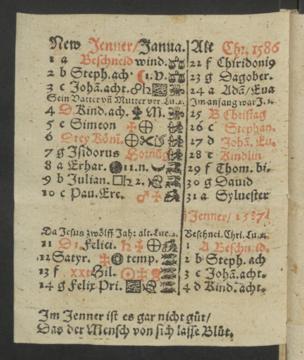 New Jenner/Janua. Alt Chr. 1586
1 a Beschneid wind. 21 f Chiridoni9
2 b Steph. ach. 1. V. 23 g Dagober.
3 c Johā. acht. 24 a Adā/Eua
Sein Vatter vñ Mutter ver. Lu. 2. Im anfang war J. 1.
4 D Kind. ach. M. 25 B Christag
5 e Simeon 26 c Stephan.
6 Drey Köni. 27 d Johā. Eu.
7 g Isidorus Hornūg 28 e Kindlin
8 a Erhar. 11. n. 29 f Thom. bi.
9 b Julian. 2. 30 g Dauid
10 c Pau. Ere. 31 a Syluester
Jenner/ 1587
Da Jesus zwölff Jah: alt. Luc. 2. Beschnei. Chri. Lu. 2.
11 D1. felici. 1 A Beschn. td.
12 Satyr. temp. 2 b Steph. ach
13 f xxt Hil. 3 c Johā. acht.
14 g Felix Pri. 4 D Kind. acht.
Im Jenner ist es gar nicht güt/
Das der Mensch von sich lasse Blüt.